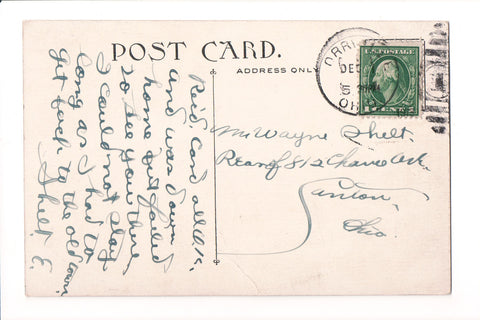 POST CARD.
ADDRESS ONLY
DEC
5
OHIO
U.S. POSTAGE
Mr Wayne Shelt.
Rear of 812 Ave.
Canton,
Ohio.
Rec'd. Card all O.K.
and was down
home but failed
to see you there
I could not stay
long as I had to
get back to the old town.
Shelt. E.